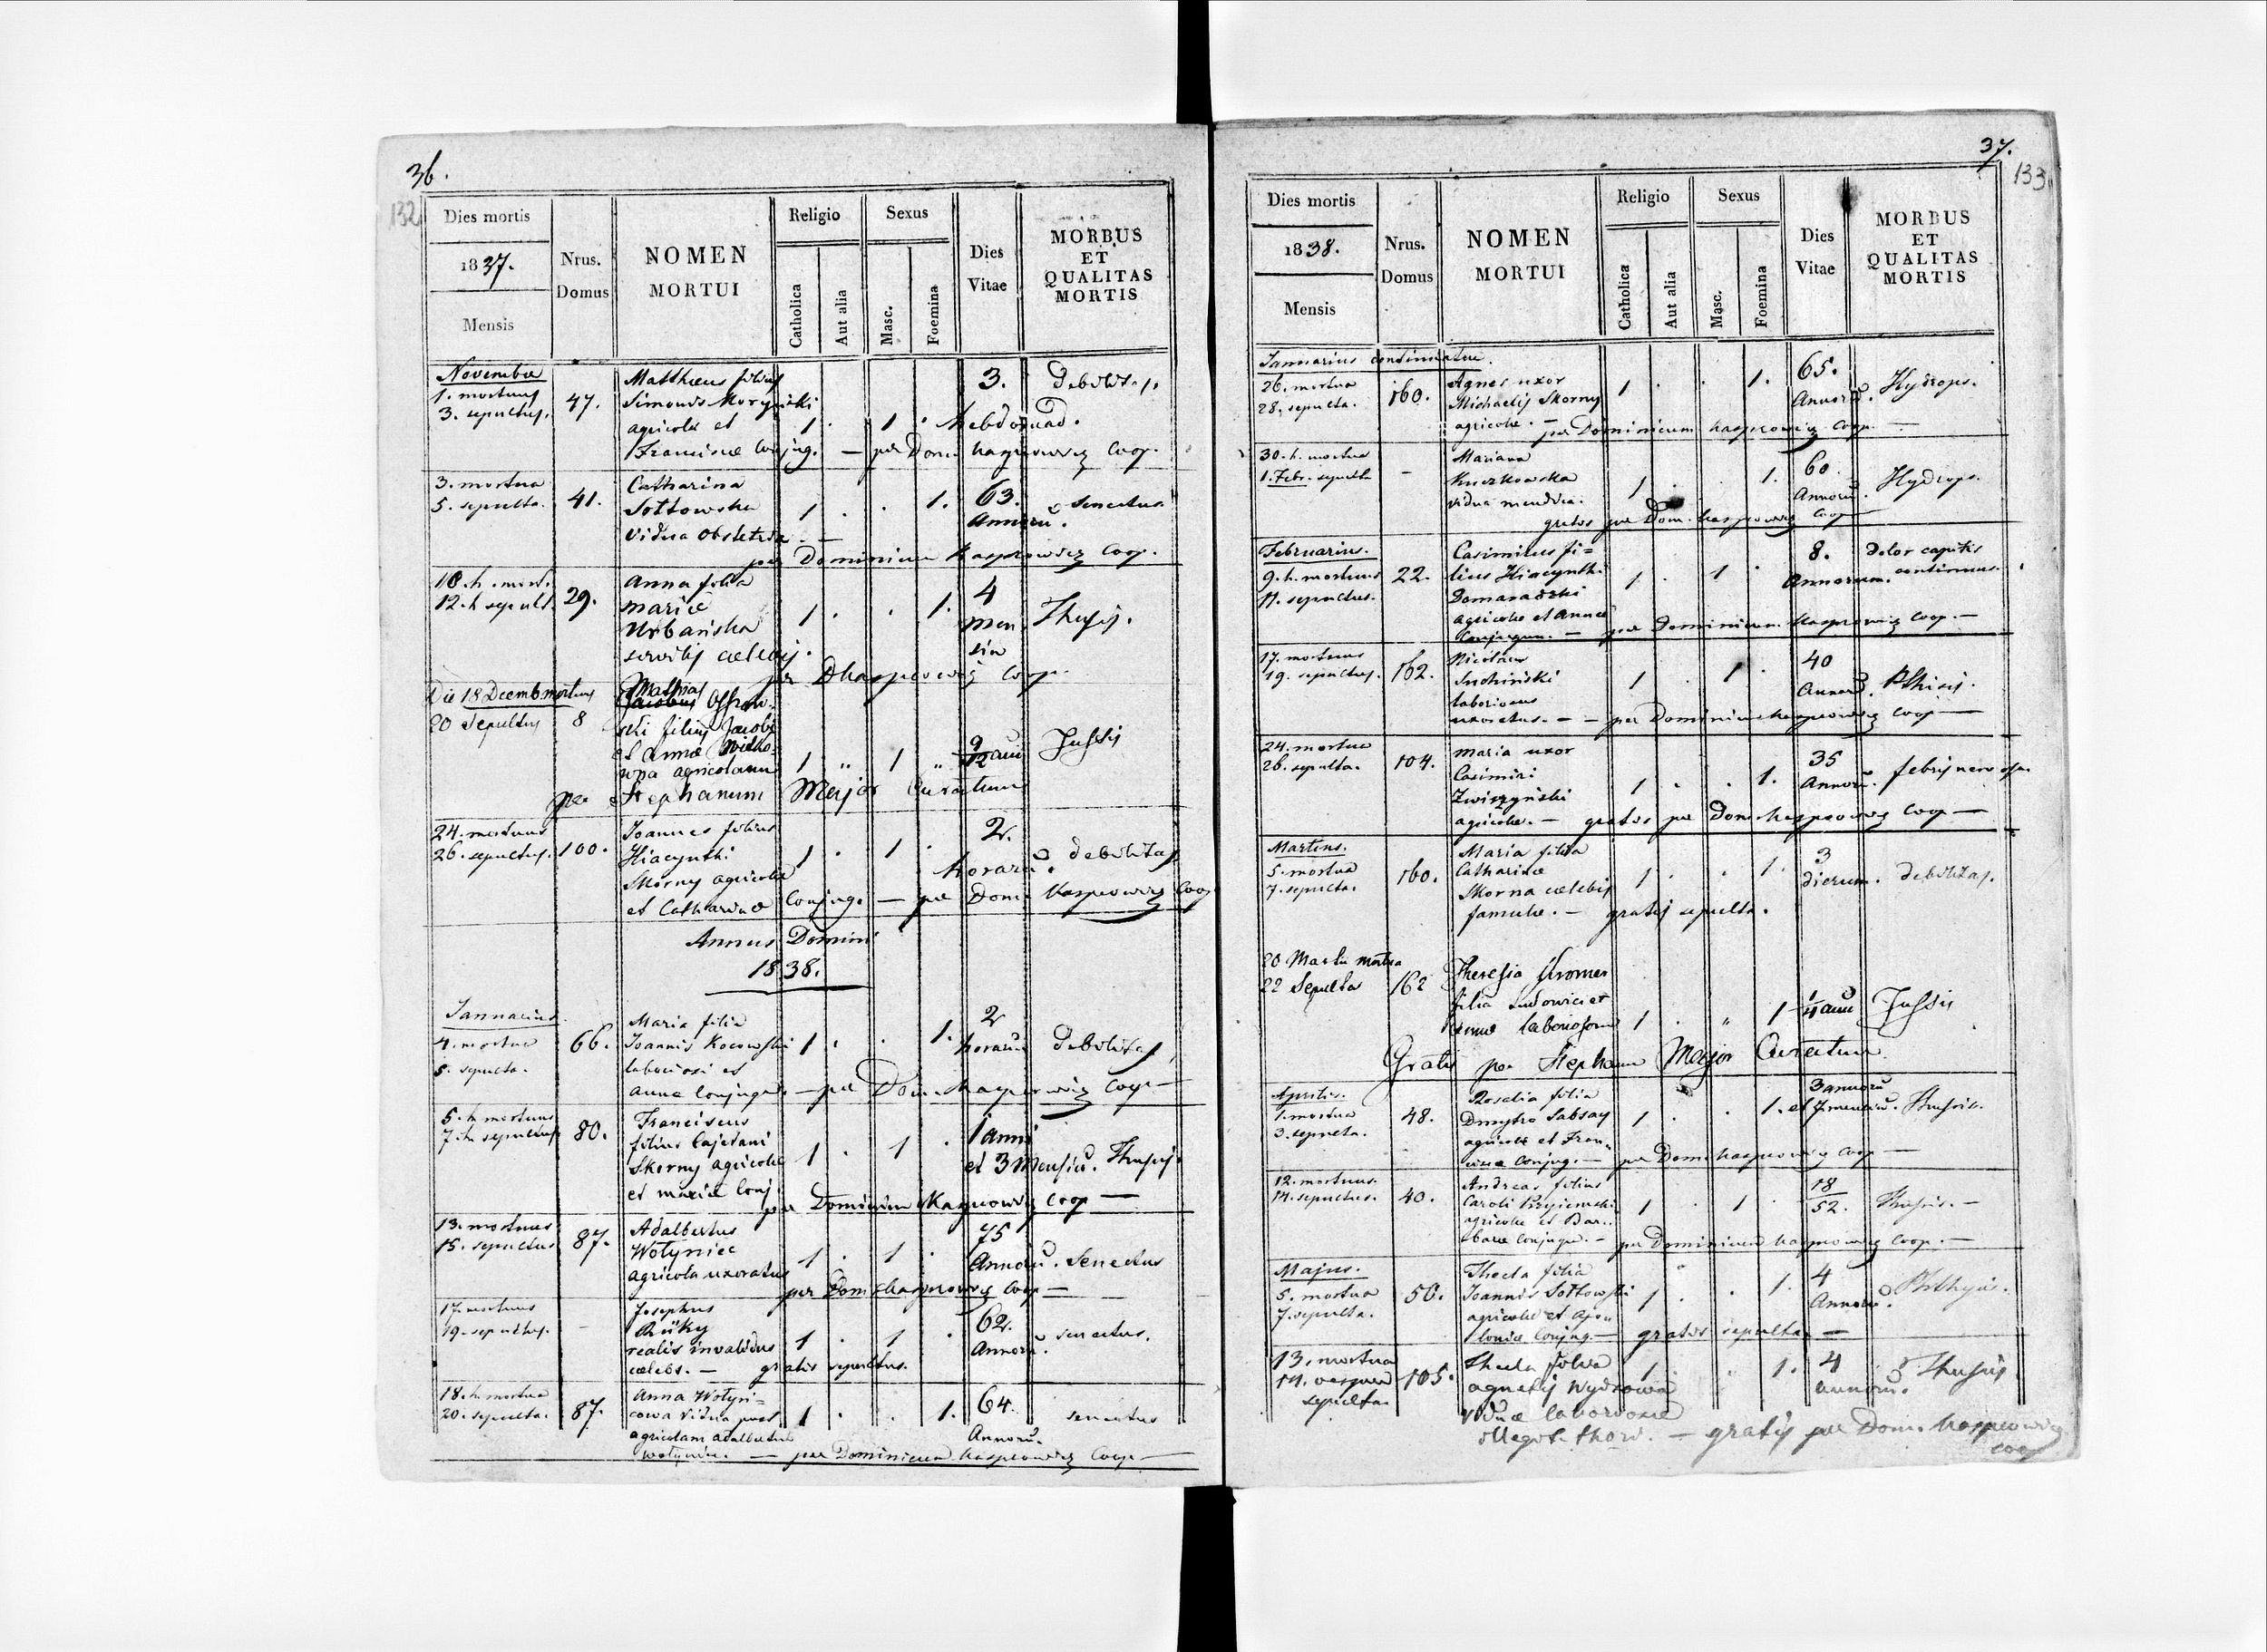 36.
132
Dies mortis
1837.
Mensis
Nrus.
Domus
NOMEN
MORTUI
Religio
Catholica
Aut alia
Sexus
Masc.
Foemina
Dies
Vitae
MORBUS
ET
QUALITAS
MORTIS
November
1. mortuus
3. sepultus.
47.
Matthaeus filius
Simonis
agricolae et
Franciscae conjug. — per Dom. Kasprowicz Coop.
1 . 1 .
3.
hebdomad.
Debilitas.
3. mortua
5. sepulta.
41.
Catharina
Sołtowska
vidua obstetrix. —
per Dominicum Kasprowicz Coop.
1 . . 1.
63.
Annorū.
senectus.
10. h. mort.
12. h sepult.
29.
Anna filia
Mariae
Urbańska
servilis caelebis.
per D Kasprowicz Coop.
1 . . 1.
4
men
siū
Thusis.
Die 18 Decemb mortuus
20 Sepultus
8
Mathias
Jacobus
ski filius Jacobi
et Annae
agricolarum
per Stephanum Major Curatum
1 " 1 "
9/12 anni
Tussis
24. mortuus
26. sepultus.
100.
Joannes filius
Hiacynthi
Skorny agricolae
et Catharinae Conjug. — per Dom. Kasprowicz Coop
1 . 1 .
2.
horarū.
debilitas
Annus Domini
1838.
Januarius
4. mortua
5. sepulta.
66.
Maria filia
Joannis Kocowski
laboriosi et
Annae conjugū. — per Dom. Kasprowicz Coop —
1 . . 1.
2
horarū
Debilitas
5. h mortuus
7. h. sepultus
80.
Franciscus
filius Cajetani
Skorny agricolae
et Mariae Conj.
per Dominicum Kasprowicz Coop —
1 . 1 .
1 anni
et 3 Mensiū.
Thusis.
13. mortuus
15. sepultus
87.
Adalbertus
Wołyniec
agricola uxoratus
per Dom Kasprowicz Coop —
1 . 1 .
75
Annorū.
Senectus
17. mortuus
19. sepultus.
-
Josephus
Rüky
realis invalidus
caelebs. — gratis sepultus.
1 . 1 .
62.
Annorū.
senectus.
18. h. mortua
20. sepulta.
87.
Anna Wołyń=
cowa vidua post
agricolam Adalbertum
— per Dominicum Kasprowicz Coop —
1 . . 1.
64.
Annorū.
senectus
37.
133
Dies mortis
1838.
Mensis
Nrus.
Domus
NOMEN
MORTUI
Religio
Catholica
Aut alia
Sexus
Masc.
Foemina
Dies
Vitae
MORBUS
ET
QUALITAS
MORTIS
Januarius continuatur.
26. mortua
28. sepulta.
160.
Agnes uxor
Michaelis Skorny
agricolae. —
per Dominicum Kasprowicz Coop. —
1 . . 1.
65.
Annorū.
Hydrops.
30. h. mortua
1. Febr. sepulta
-
Mariana
Kuczkowska
vidua mendica.
gratis per Dom. Kasprowicz Coop —
1 . . 1.
60.
Annorū.
Hydrops.
Februarius.
9. h. mortuus
11. sepultus.
22.
Casimirus fi=
lius Hiacynthi
Domaradzki
agricolae et Annae
Conjugum. — per Dominicum Kasprowicz Coop. —
1 . 1 .
8.
Annorum.
dolor capitis
continuus.
17. mortuus
19. sepultus.
162.
Nicolaus
Suchiński
laboriosus
uxoratus. — — per Dominicum Kasprowicz Coop —
1 . 1 .
40
Annorū.
Pthisis.
24. mortua
26. sepulta.
104.
Maria uxor
Casimiri
agricolae. — gratis per Dom Kasprowicz Coop —
1 . . 1.
35
Annorū.
febris nervosa
Martius.
5. mortua
7. sepulta.
160.
Maria filia
Catharinae
Skorna caelebis
famulae. — gratis sepulta.
1 . . 1.
3
dierum.
debilitas.
20 Martii mortua
22 Sepulta
162
Theresia Kromer
filia Ludovici et
Annae laboriosorum
Gratis per Stephanum Major Curatum.
1 . " 1
1/4 anni
Tussis
Aprilis.
1. mortua
3. sepulta.
48.
Rosalia filia
Dmytro Sabsay
agricolae et Fran=
ciscae Conjug. — per Dom Kasprowicz Coop —
1 . . 1.
3 annorū
et 7 mensiū.
Thusis.
12. mortuus.
14. sepultus.
40.
Andreas filius
Caroli
agricolae et Bar=
barae Conjugū. — per Dominicum Kasprowicz Coop. —
1 . 1 .
18
52.
Thusis. —
Majus.
5. mortua
7. sepulta.
50.
Thecla filia
Joannis Sołtowski
agricolae et Apo=
loniae Conjug. — gratis sepulta —
1 . . 1.
4
Annorū.
Phthysis.
13. mortua
14. vesperi
sepulta.
105.
Thecla filia
Agnetis Wydrowa
viduae laboriosae
illegit. thori. — gratis per Dom. Kasprowicz
Coop
1 . . 1.
4
annorū.
Thusis